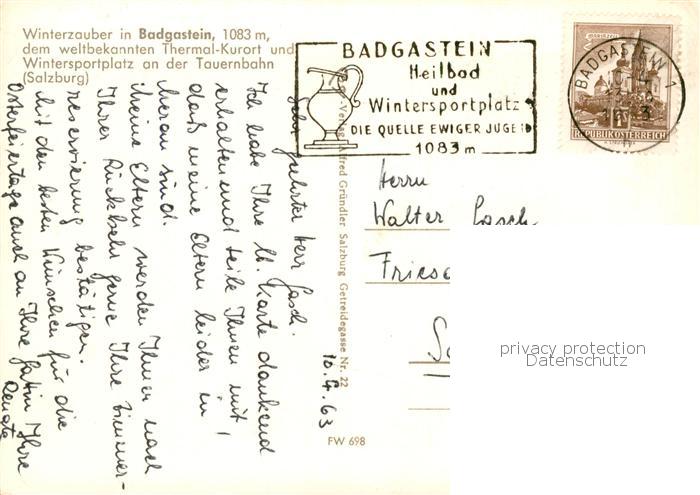 Winterzauber in Badgastein, 1083 m,
dem weltbekannten Thermal-Kurort und
Wintersportplatz an der Tauernbahn
(Salzburg)
BADGASTEIN
Heilbad
und
Wintersportplatz
DIE QUELLE EWIGER JUGEND
1083 m
BADGASTEIN 1
REPUBLIK ÖSTERREICH
Herrn
Walter Lasch
Fries
10.4.63
Sehr geehrter Herr Lasch.
Ich habe Ihre lb. Karte dankend
erhalten und teile Ihnen mit,
daß meine Eltern leider in
Meran sind.
Meine Eltern werden Ihnen nach
Ihrer Rückkehr gerne Ihre Zimmer-
reservierung bestätigen.
Mit den besten Wünschen für die
Osterfeiertage auch an Ihre Gattin Ihre
Renate
Verlag Alfred Gründler Salzburg Getreidegasse Nr. 22
FW 698
privacy protection
Datenschutz